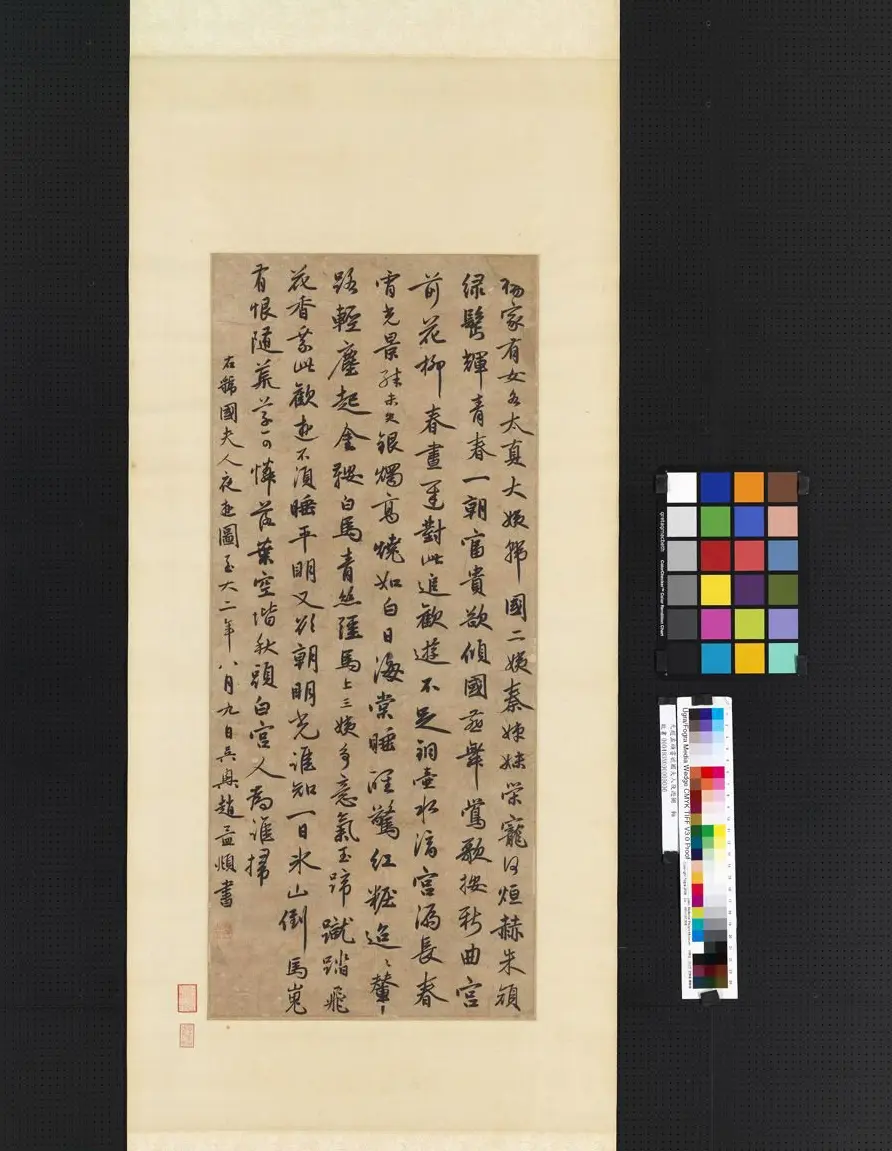 楊家有女名太真大姨虢國二姨秦姊妹榮寵何烜赫朱顏
綠鬢輝青春一朝富貴欲傾國燕舞鶯歌按新曲宮
前花柳春晝遲對此追歡遊不足銅壺水滴宮漏長春
宵光景殊未久銀燭高燒如白日海棠睡醒驚紅粧迢〻輦
路輕塵起金鞍白馬青絲韁馬上三姨多意氣玉蹄蹴踏飛
花香乘此歡遊不須睡平明又欲朝明光誰知一日冰山倒馬嵬
有恨隨荒草可憐落葉空階秋頭白宮人為誰掃
右虢國夫人夜遊圖至大二年八月九日吳興趙孟頫書
gretagmacbeth
ColorChecker Color Rendition Chart
Ugra/Fogra Media Wedge CMYK TIFF V3.0 Proof